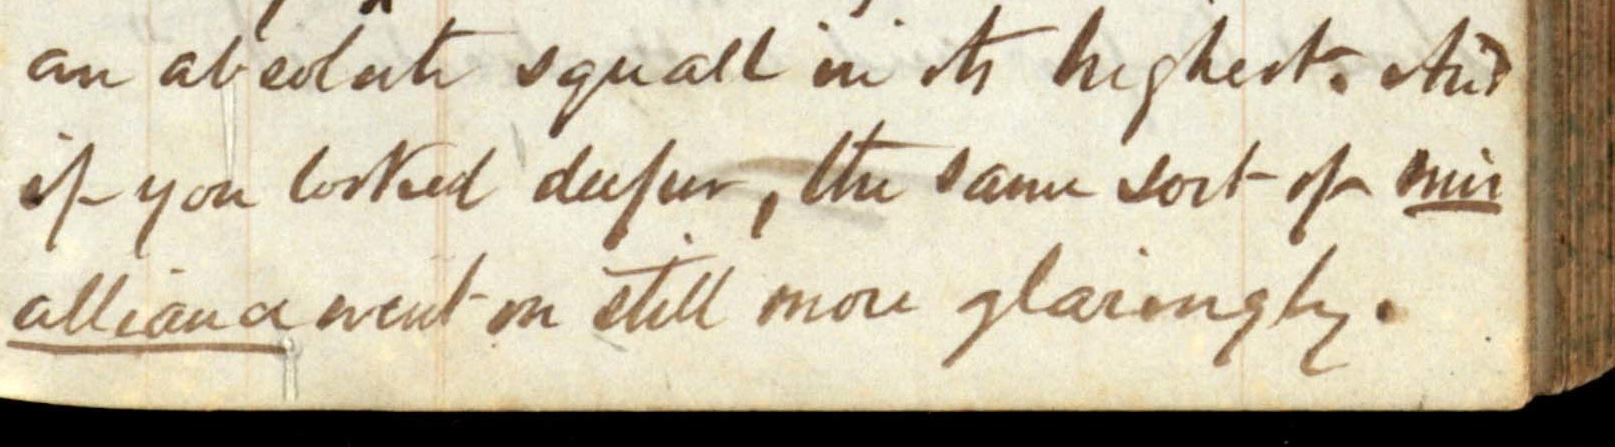 an absolute squall in its highest. And
if you looked deeper, the same sort of mis
alliance went on still more glaringly.